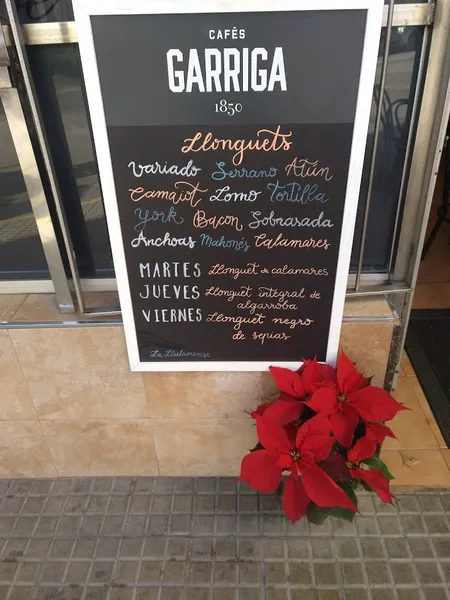 CAFÈS
GARRIGA
1850
Llonguets
Variado Serrano Atún
Camaiot Lomo Tortilla
York Bacon Sobrasada
Anchoas Mahonés Calamares
MARTES Llonguet de calamares
JUEVES Llonguet integral de
algarroba
VIERNES Llonguet negro
de sepias
La Llubinense